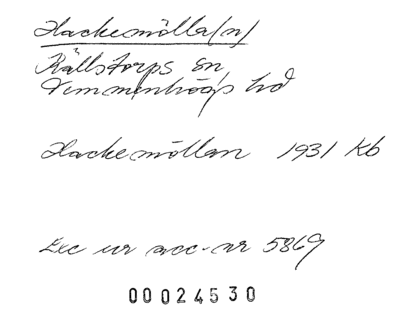 Hackemölla(n)
Källstorps sn
Vemmenhögs hd
Hackemöllan 1931 Kb
Exc ur acc.nr 5869
00024530